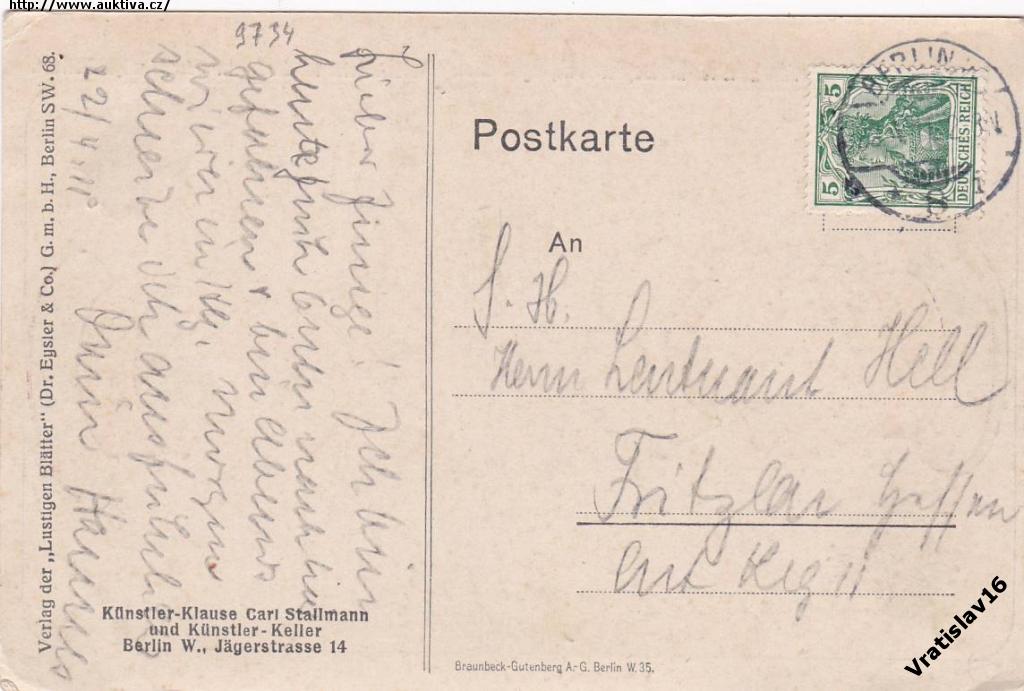 http://www.auktiva.cz/
9734
Lieber Junge! Ich bin
heute früh
gefahren + bin abends
wieder in Hbg. morgen
schreibe ich ausführlich
22/4.11. Dein
Verlag der „Lustigen Blätter" (Dr. Eysler & Co.) G. m. b. H., Berlin SW. 68.
Künstler-Klause Carl Stallmann
und Künstler-Keller
Berlin W., Jägerstrasse 14
Postkarte
BERLIN
5 5
DEUTSCHES REICH
An
S. H.
Herrn Leutnant Hell
Fritzlar Hessen
Art Reg 11
Braunbeck-Gutenberg A.-G. Berlin W. 35.
Vratislav16